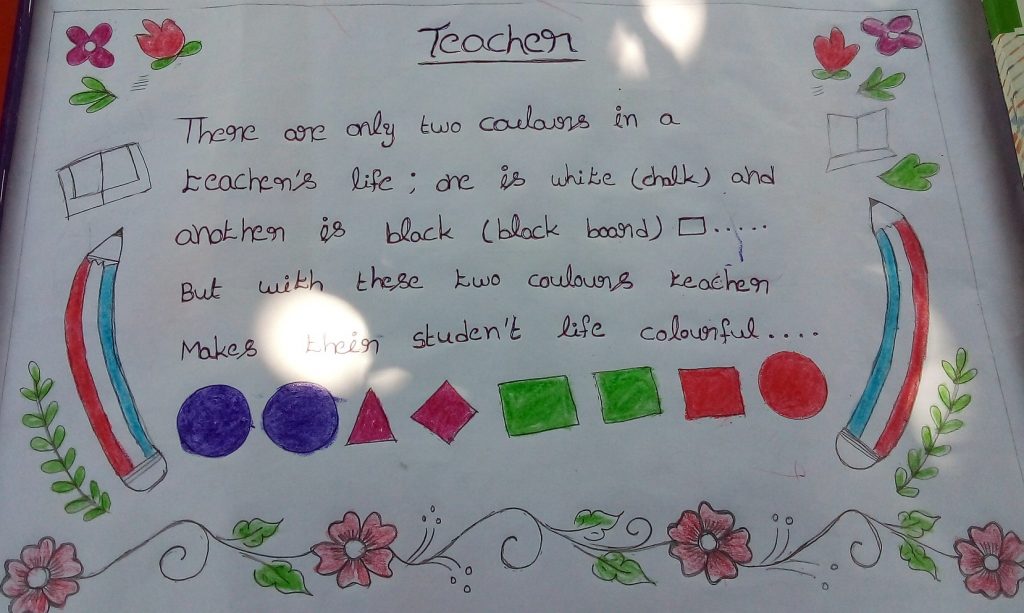 Teacher
There are only two coulours in a
teacher's life ; one is white (chalk) and
another is black (black board) .....
But with these two coulours teacher
Makes their student't life colourful....